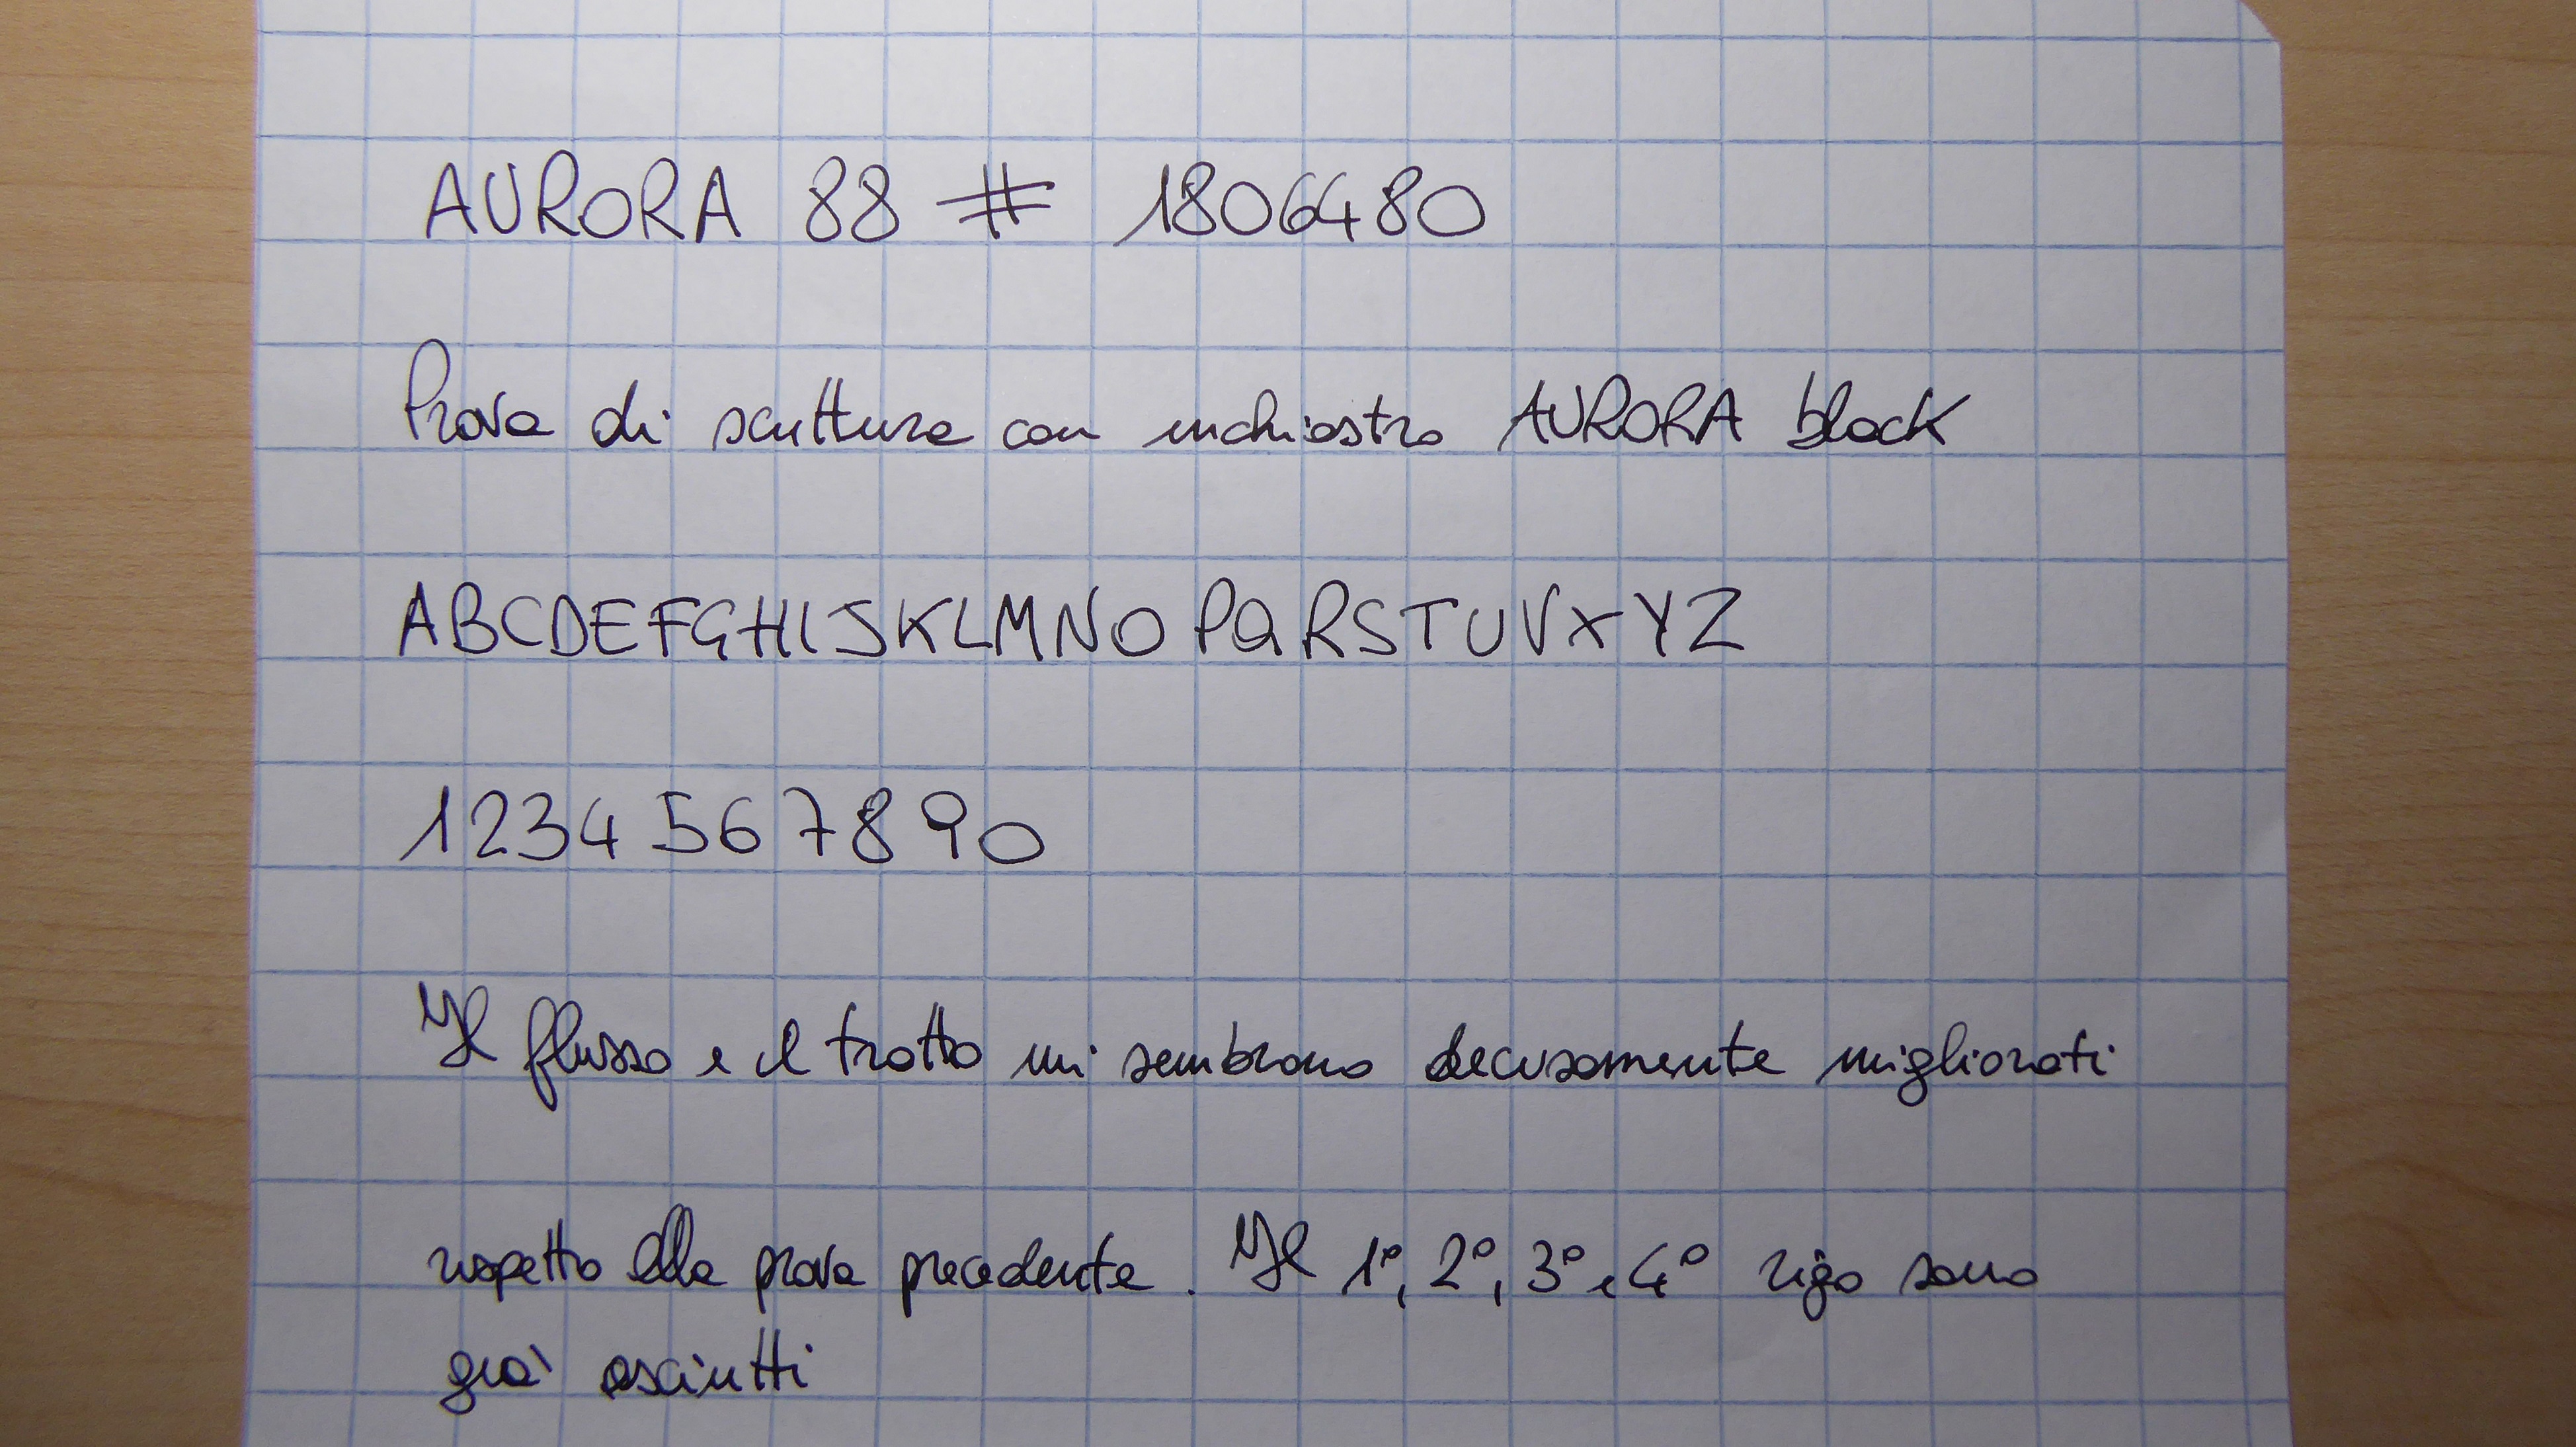 AURORA 88 # 1806480
Prova di scrittura con inchiostro AURORA black
ABCDEFGHIJKLMNOPQRSTUVXYZ
1234567890
Il flusso e il tratto mi sembrano decisamente migliorati
rispetto alla prova precedente. Il 1°, 2°, 3° e 4° rigo sono
già asciutti